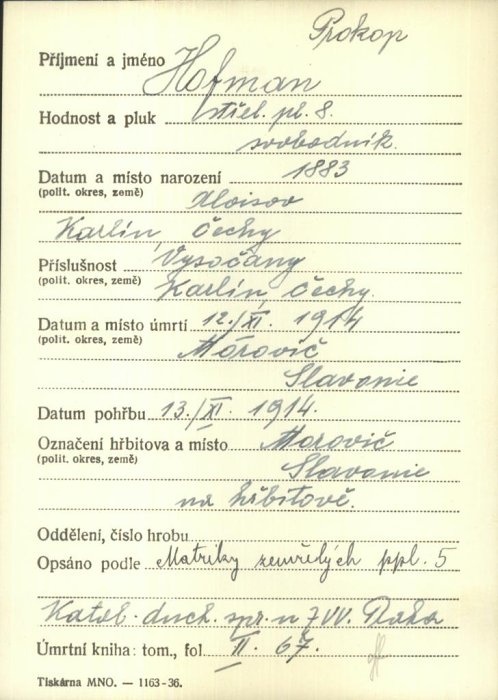 Prokop
Příjmení a jméno Hofman
Hodnost a pluk střel. pl. 8.
svobodník.
Datum a místo narození 1883
(polit. okres, země) Aloisov
Karlín, Čechy
Příslušnost Vysočany
(polit. okres, země) Karlín, Čechy.
Datum a místo úmrtí 12./XI. 1914
(polit. okres, země) Mórovič
Slavonie
Datum pohřbu 13./XI. 1914.
Označení hřbitova a místo Morovič
(polit. okres, země) Slavonie
na hřbitově.
Oddělení, číslo hrobu
Opsáno podle Matriky zemřelých ppl. 5
Katol. duch. spr. u ZVV. Praha
Úmrtní kniha: tom., fol. II. 67.
Tiskárna MNO. — 1163-36.